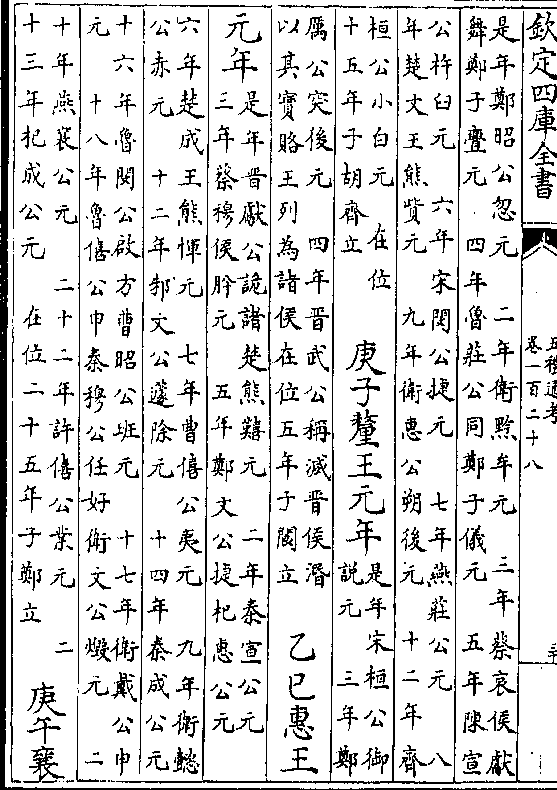 欽定四庫全書
五禮通考
卷一百二十八
是年鄭昭公忽元 二年衛黔牟元 三年蔡哀侯獻
舞鄭子亹元 四年魯莊公同鄭子儀元 五年陳宣
公杵臼元 六年宋閔公捷元 七年燕莊公元 八
年楚文王熊貲元 九年衛惠公朔後元 十二年齊
桓公小白元 在位
十五年子胡齊立
庚子釐王元年
是年宋桓公御
説元 三年鄭
厲公突後元 四年晉武公稱滅晉侯潛
以其寶賂王列為諸侯在位五年子閬立
乙巳惠王
元年
是年晉獻公詭諸楚熊囏元 二年秦宣公元
三年蔡穆侯肸元 五年鄭文公捷杞惠公元
六年楚成王熊惲元 七年曹僖公夷元 九年衛懿
公赤元 十二年邾文公蘧除元 十四年秦成公元
十六年魯閔公啟方曹昭公班元 十七年衛戴公申
元 十八年魯僖公申秦穆公任好衛文公燬元 二
十年燕襄公元 二十二年許僖公業元 二
十三年杞成公元 在位二十五年子鄭立
庚午襄